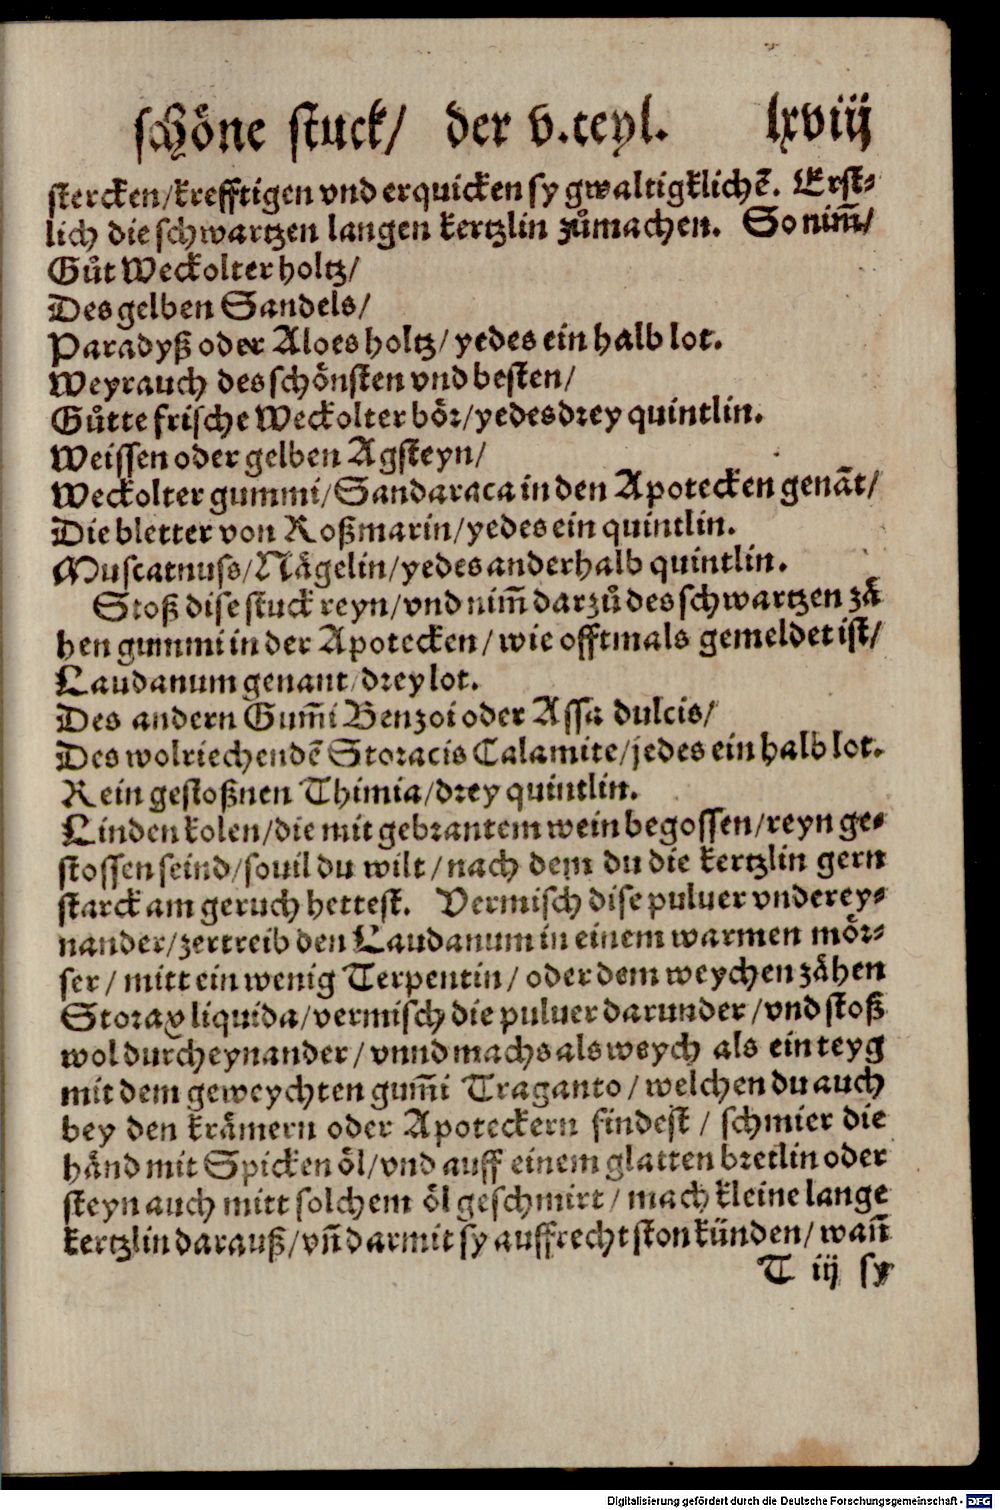 schöne stuck/ der v.teyl. lxviij
stercken/krefftigen vnd erquicken sy gwaltigklichẽ. Erst-
lich die schwartzen langen kertzlin zůmachen. So nim̃/
Gůt Weckolter holtz/
Des gelben Sandels/
Paradyß oder Aloes holtz/ yedes ein halb lot.
Weyrauch des schönsten vnd besten/
Gůtte frische Weckolter bör/yedes drey quintlin.
Weissen oder gelben Agsteyn/
Weckolter gummi/Sandaraca in den Apotecken genãt/
Die bletter von Roßmarin/yedes ein quintlin.
Muscatnuss/Nägelin/yedes anderhalb quintlin.
Stoß dise stuck reyn/vnd nim̃ darzů des schwartzen zä
hen gummi in der Apotecken/ wie offtmals gemeldet ist/
Laudanum genant/drey lot.
Des andern Gum̃i Benzoi oder Assa dulcis/
Des wolriechendẽ Storacis Calamite/jedes ein halb lot.
Rein gestoßnen Thimia/drey quintlin.
Linden kolen/die mit gebrantem wein begossen/reyn ge-
stossen seind/souil du wilt/nach dem du die kertzlin gern
starck am geruch hettest. Vermisch dise puluer vnderey-
nander/zertreib den Laudanum in einem warmen mör-
ser/ mitt ein wenig Terpentin/ oder dem weychen zähen
Storax liquida/vermisch die puluer darunder/vnd stoß
wol durcheynander/ vnnd machs als weych als ein teyg
mit dem geweychten gum̃i Traganto/ welchen du auch
bey den krämern oder Apoteckern findest/ schmier die
händ mit Spicken öl/vnd auff einem glatten bretlin oder
steyn auch mitt solchem öl geschmirt/ mach kleine lange
kertzlin darauß/vñ darmit sy auffrecht ston künden/ wañ
T iij sy
Digitalisierung gefördert durch die Deutsche Forschungsgemeinschaft - DFG